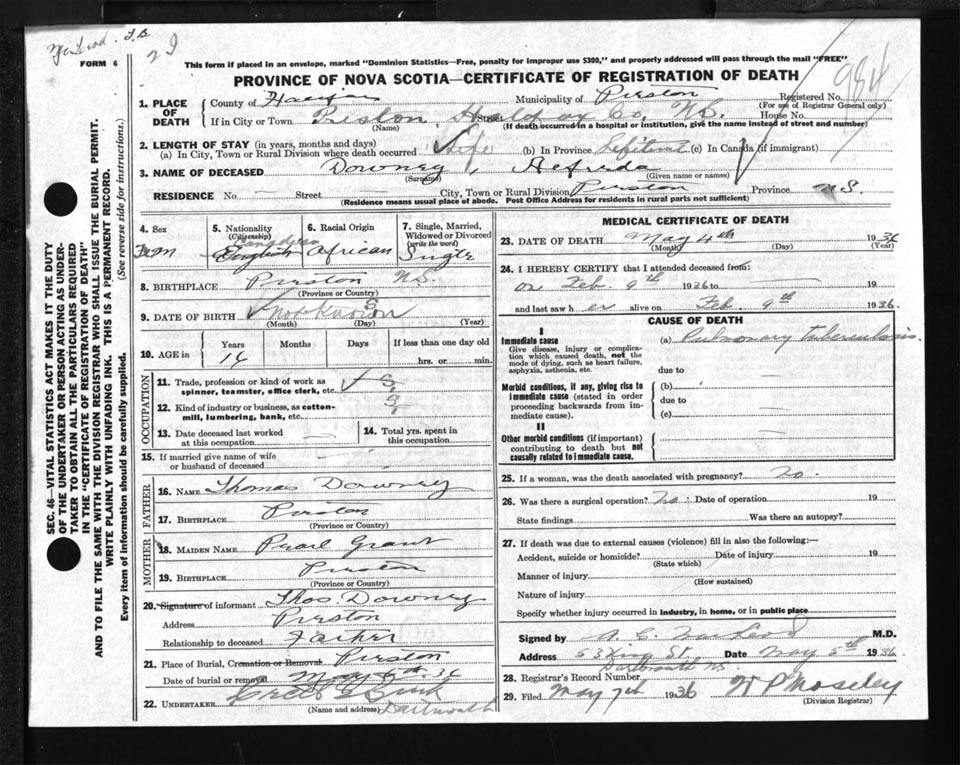 McLeod. T.B.
FORM 6
This form if placed in an envelope, marked "Dominion Statistics—Free, penalty for improper use $300," and properly addressed will pass through the mail "FREE"
PROVINCE OF NOVA SCOTIA—CERTIFICATE OF REGISTRATION OF DEATH
984
1. PLACE OF DEATH
County of Halifax Municipality of Preston Registered No.
(For use of Registrar General only)
If in City or Town Preston Halifax Co, N.S. Street House No.
(Name) (If death occurred in a hospital or institution, give the name instead of street and number)
2. LENGTH OF STAY (in years, months and days)
(a) In City, Town or Rural Division where death occurred Life (b) In Province Lifetime (c) In Canada (if immigrant)
3. NAME OF DECEASED Downey, Alfreda
(Surname) (Given name or names)
RESIDENCE No. — Street — City, Town or Rural Division Preston Province N.S.
(Residence means usual place of abode. Post Office Address for residents in rural parts not sufficient)
SEC. 46—VITAL STATISTICS ACT MAKES IT THE DUTY
OF THE UNDERTAKER OR PERSON ACTING AS UNDER-
TAKER TO OBTAIN ALL THE PARTICULARS REQUIRED
IN THE "CERTIFICATE OF REGISTRATION OF DEATH"
AND TO FILE THE SAME WITH THE DIVISION REGISTRAR WHO SHALL ISSUE THE BURIAL PERMIT.
WRITE PLAINLY WITH UNFADING INK. THIS IS A PERMANENT RECORD.
Every item of information should be carefully supplied. (See reverse side for instructions.)
4. Sex
Fem
5. Nationality
(Citizenship)
Canadian
English
6. Racial Origin
African
7. Single, Married, Widowed or Divorced
(write the word)
Single
8. BIRTHPLACE Preston N.S.
(Province or Country)
9. DATE OF BIRTH Not known S
(Month) (Day) (Year)
10. AGE in Years Months Days If less than one day old
hrs. or min.
OCCUPATION
11. Trade, profession or kind of work as
spinner, teamster, office clerk, etc. S
12. Kind of industry or business, as cotton-
mill, lumbering, bank, etc. S
13. Date deceased last worked
at this occupation —
14. Total yrs. spent in
this occupation. —
15. If married give name of wife
or husband of deceased —
FATHER
16. NAME Thomas Downey
17. BIRTHPLACE Preston
(Province or Country)
MOTHER
18. MAIDEN NAME Pearl Grant
19. BIRTHPLACE Preston
(Province or Country)
20. Signature of informant Thos Downey
Address Preston
Relationship to deceased Father
21. Place of Burial, Cremation or Removal Preston
Date of burial or removal May 6th 36
22. UNDERTAKER
(Name and address) Dartmouth
MEDICAL CERTIFICATE OF DEATH
23. DATE OF DEATH May 4th 1936
(Month) (Day) (Year)
24. I HEREBY CERTIFY that I attended deceased from:
on Feb. 9th 1936 to —
and last saw her alive on Feb. 9th 1936.
CAUSE OF DEATH
I
Immediate cause
Give disease, injury or compli-
cation which caused death, not the
mode of dying, such as heart failure,
asphyxia, asthenia, etc.
(a) Pulmonary tuberculosis.
due to
Morbid conditions, if any, giving rise to
immediate cause (stated in order
proceeding backwards from im-
mediate cause).
(b) —
due to
(c) —
II
Other morbid conditions (if important)
contributing to death but not
causally related to immediate cause.
25. If a woman, was the death associated with pregnancy? No.
26. Was there a surgical operation? No Date of operation 19
State findings Was there an autopsy?
27. If death was due to external causes (violence) fill in also the following:—
Accident, suicide or homicide? Date of injury 19
(State which)
Manner of injury
(How sustained)
Nature of injury
Specify whether injury occurred in industry, in home, or in public place
Signed by MacLeod M.D.
Address 53 King St., Dartmouth N.S. Date May 5th 1936
28. Registrar's Record Number
29. Filed May 7th 1936 W P Moseley
(Division Registrar)